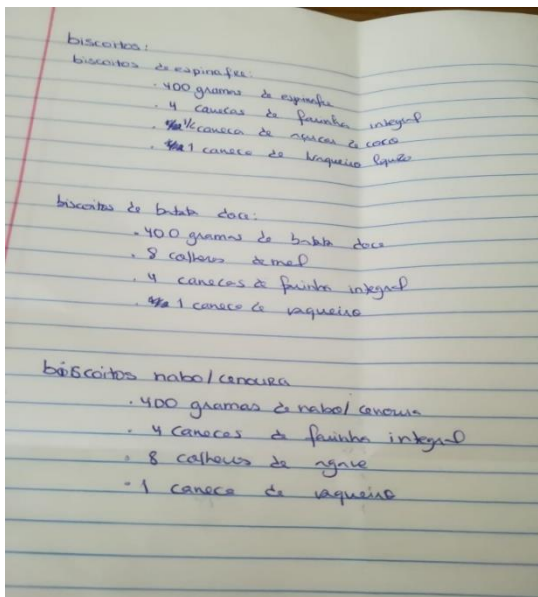 biscoitos:
biscoitos de espinafre:
. 400 gramas de espinafre
. 4 canecas de farinha integral
. 1/2 caneca de açucar de coco
. 1 caneca de vaqueiro liquido
biscoitos de batata doce:
. 400 gramas de batata doce
. 8 colheres de mel
. 4 canecas de farinha integral
. 1 caneca de vaqueiro
biscoitos nabo/cenoura
. 400 gramas de nabo/cenoura
. 4 canecas de farinha integral
. 8 colheres de agave
. 1 caneca de vaqueiro